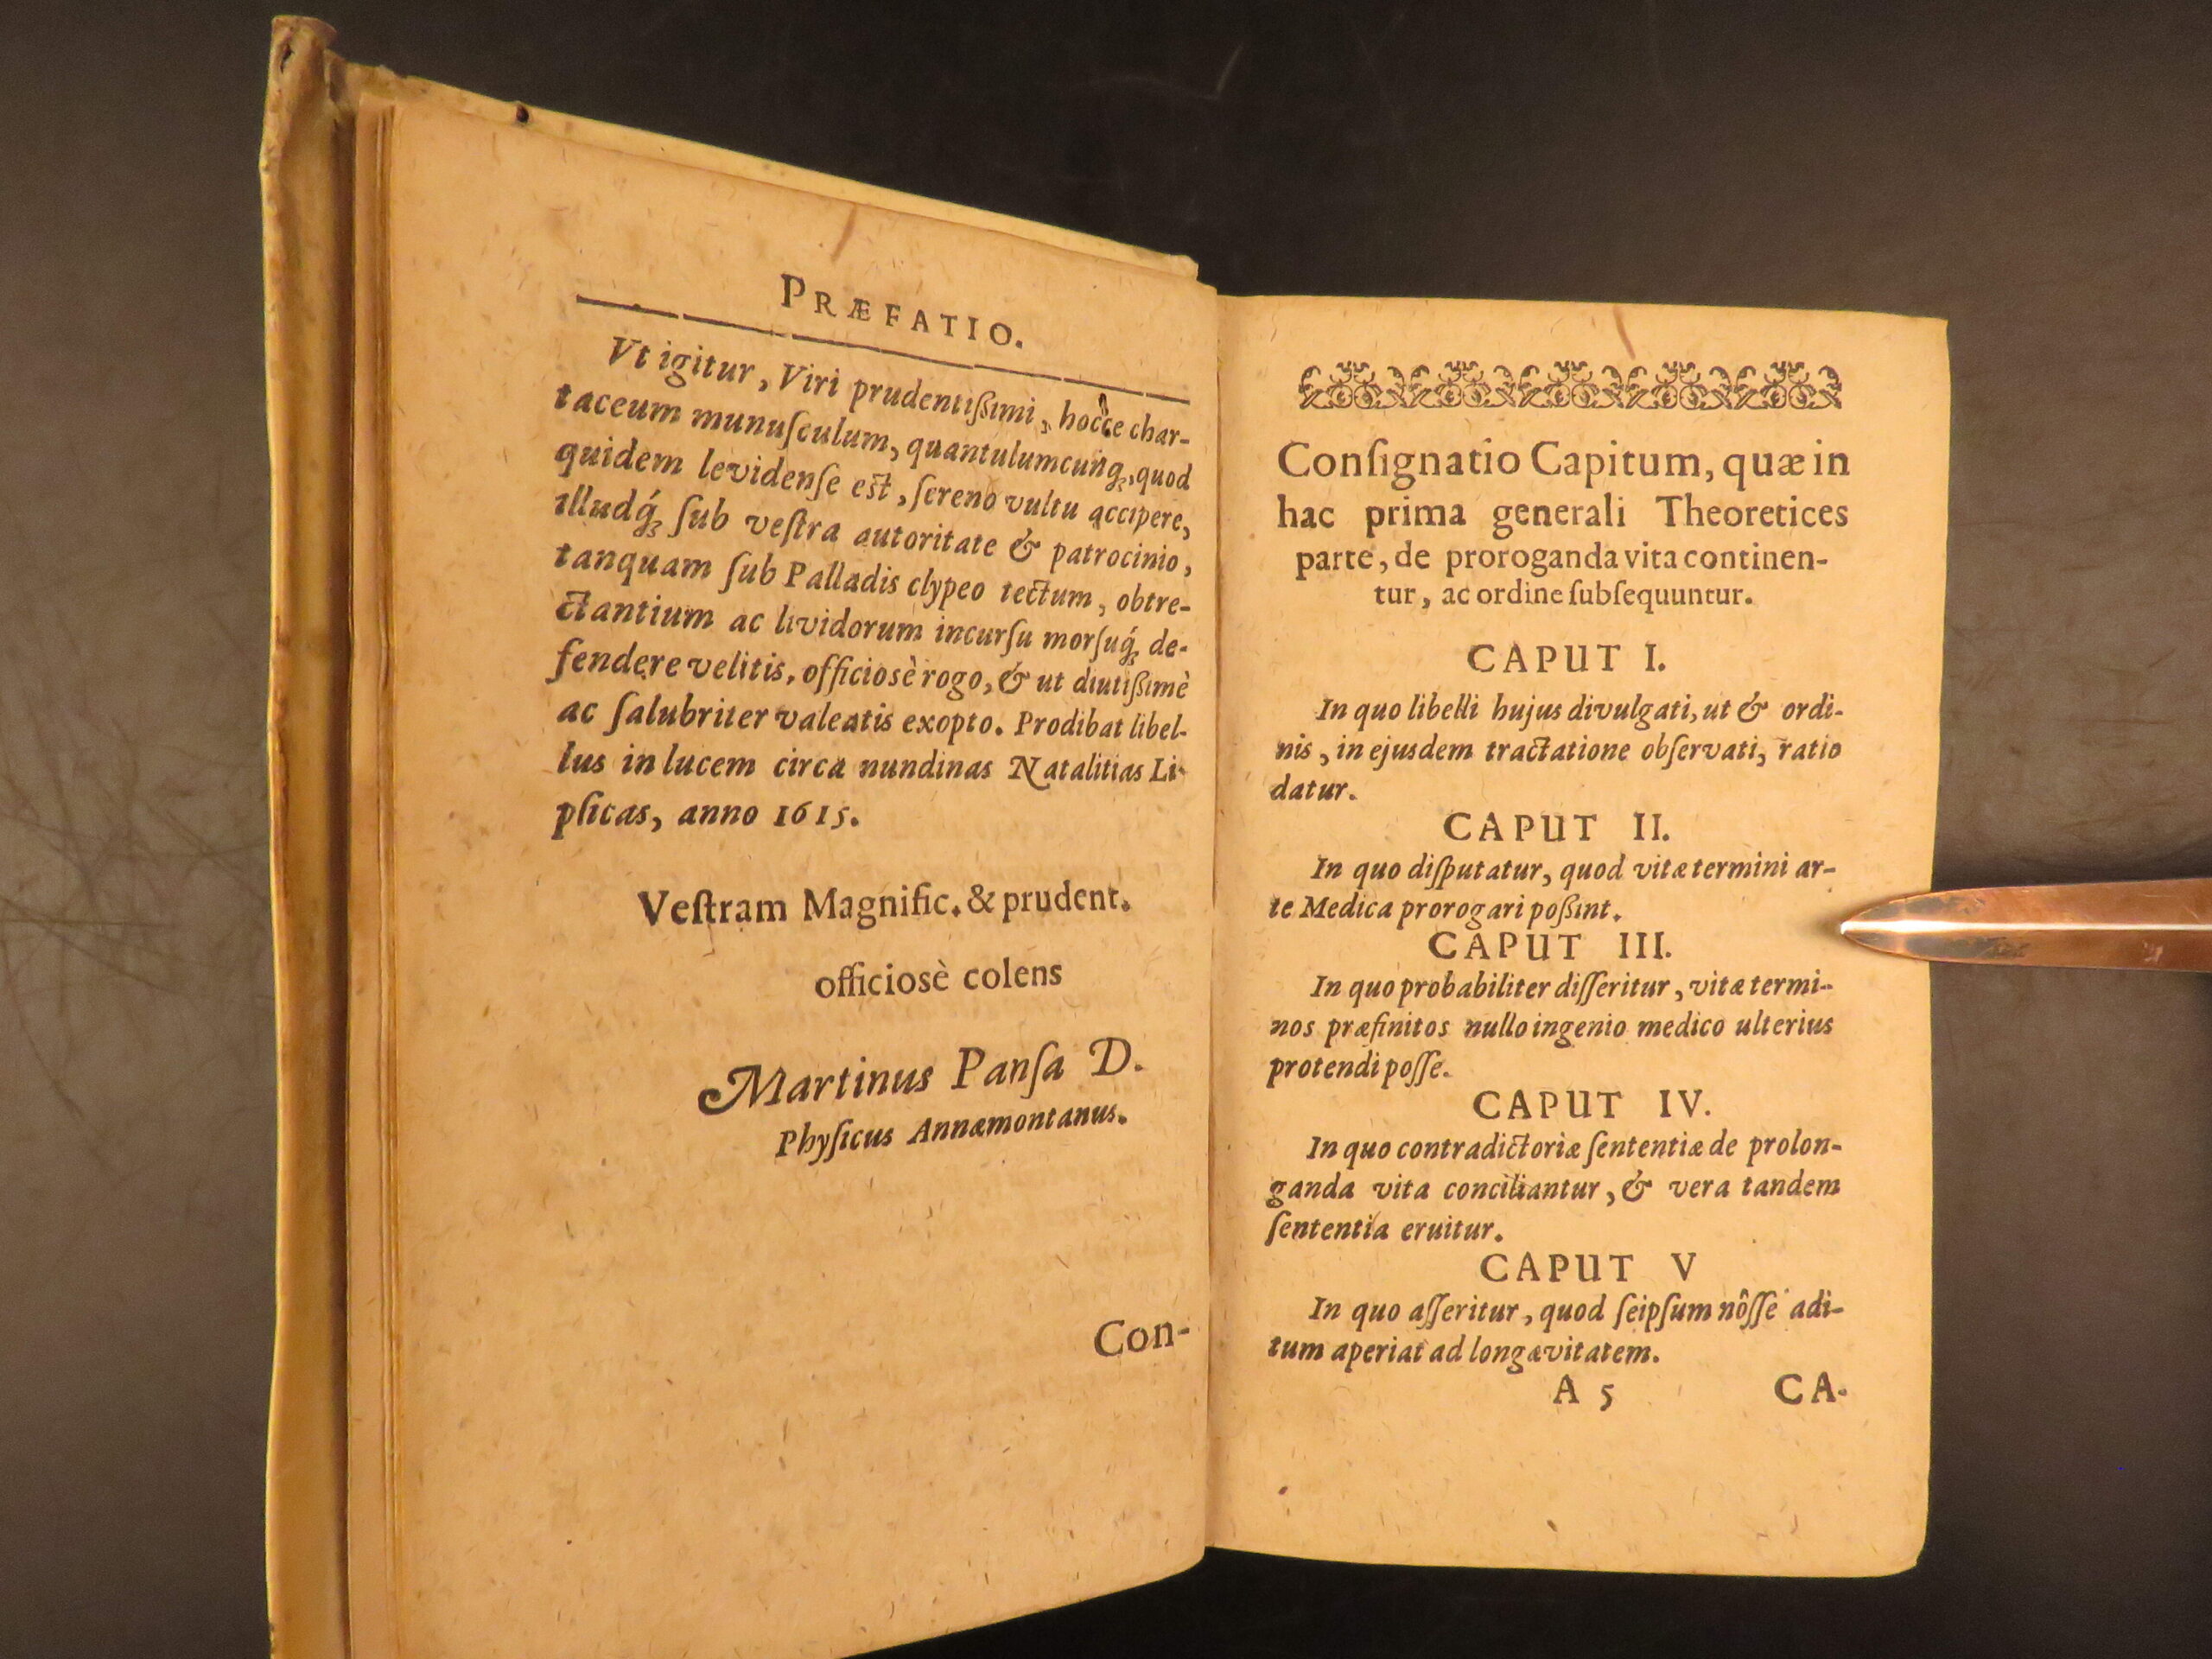 PRÆFATIO.
Vt igitur, Viri prudentißimi, hocce char-
taceum munuſculum, quantulumcunq́ꝫ, quod
quidem levidenſe est, ſereno vultu accipere,
illudq́ꝫ ſub veſtra autoritate & patrocinio,
tanquam ſub Palladis clypeo tectum, obtre-
ctantium ac lividorum incurſu morſuq́ꝫ de-
fendere velitis, officiosè rogo, & ut diutißimè
ac ſalubriter valeatis exopto. Prodibat libel-
lus in lucem circa nundinas Natalitias Li-
pſicas, anno 1615.
Veſtram Magnific. & prudent.
officiosè colens
Martinus Panſa D.
Phyſicus Annæmontanus.
Con-
Conſignatio Capitum, quæ in
hac prima generali Theoretices
parte, de proroganda vita continen-
tur, ac ordine ſubſequuntur.
CAPUT I.
In quo libelli hujus divulgati, ut & ordi-
nis, in ejusdem tractatione obſervati, ratio
datur.
CAPUT II.
In quo diſputatur, quod vitæ termini ar-
te Medica prorogari poßint.
CAPUT III.
In quo probabiliter diſſeritur, vitæ termi-
nos præfinitos nullo ingenio medico ulterius
protendi poſſe.
CAPUT IV.
In quo contradictoriæ ſententiæ de prolon-
ganda vita conciliantur, & vera tandem
ſententia eruitur.
CAPUT V
In quo aſſeritur, quod ſeipſum nôſſe adi-
tum aperiat ad longævitatem.
A 5 CA-